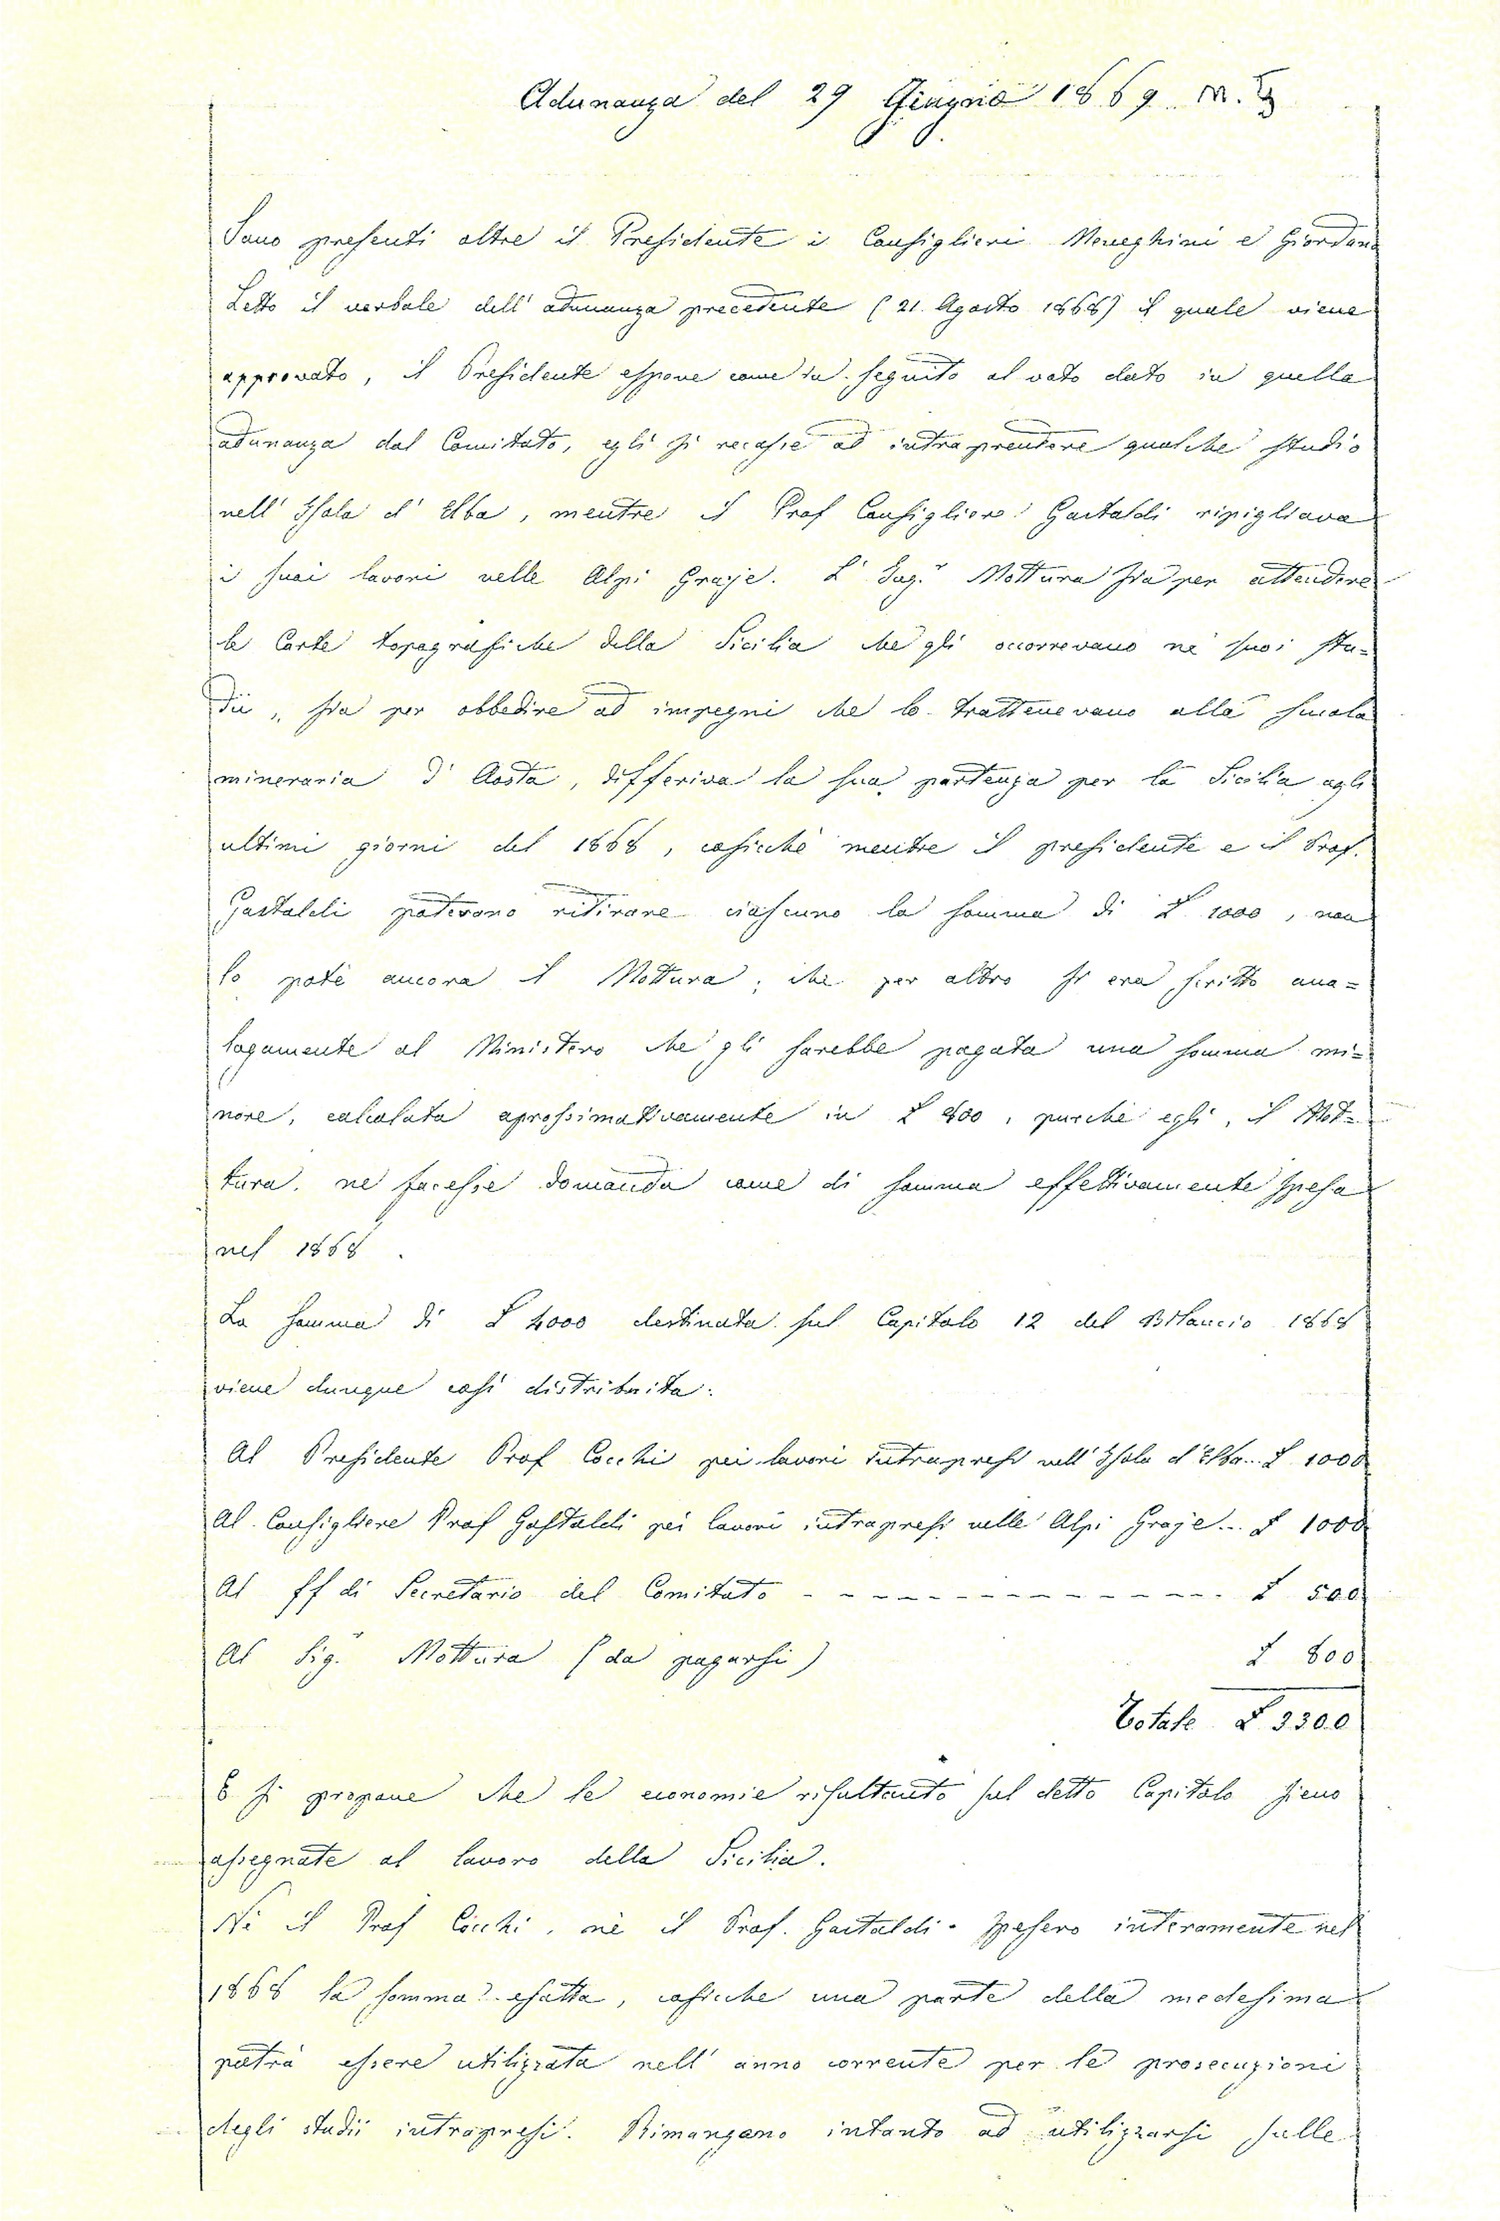 Adunanza del 29 Giugno 1869
Sono presenti oltre il Presidente i Consiglieri Meneghini e Giordano
Letto il verbale dell' adunanza precedente (21. Agosto 1868) il quale viene
approvato, il Presidente espone come in seguito al voto dato in quella
adunanza dal Comitato, egli si recasse ad intraprendere qualche studio
nell' Isola d' Elba, mentre il Prof Consigliere Gastaldi ripigliava
i suoi lavori nelle Alpi Graje. L' Ing.r Mottura sia per attendere
le Carte topografiche della Sicilia che gli occorrevano ne' suoi stu=
dii, sia per obbedire ad impegni che lo trattenevano alla scuola
mineraria d' Aosta, differiva la sua partenza per la Sicilia agli
ultimi giorni del 1868, cosicchè mentre il presidente e il Prof.
Gastaldi poterono ritirare ciascuno la somma di £ 1000, non
lo potè ancora il Mottura; che per altro si era scritto ana=
logamente al Ministero che gli sarebbe pagata una somma mi=
nore, calcolata aprossimativamente in £ 800, purchè egli, il Mot=
tura. ne facesse domanda come di somma effettivamente spesa
nel 1868.
La somma di £ 4000 destinata sul Capitolo 12 del Bilancio 1868
viene dunque così distribuita:
Al Presidente Prof Cocchi pei lavori intrapresi nell' Isola d' Elba... £ 1000
Al Consigliere Prof Gastaldi pei lavori intrapresi nelle Alpi Graje... £ 1000
Al ff di Secretario del Comitato - - - - - - - - - - - - - - - £ 500
Al Sig.r Mottura (da pagarsi) £ 800
Totale £ 3300
E si propone che le economie risultanti sul detto Capitolo sieno
assegnate al lavoro della Sicilia.
Nè il Prof Cocchi, nè il Prof. Gastaldi spesero interamente nel
1868 la somma esatta, cosicche una parte della medesima
potrà essere utilizzata nell' anno corrente per le prosecuzioni
degli studii intrapresi. Rimangano intanto ad utilizzarsi sulle